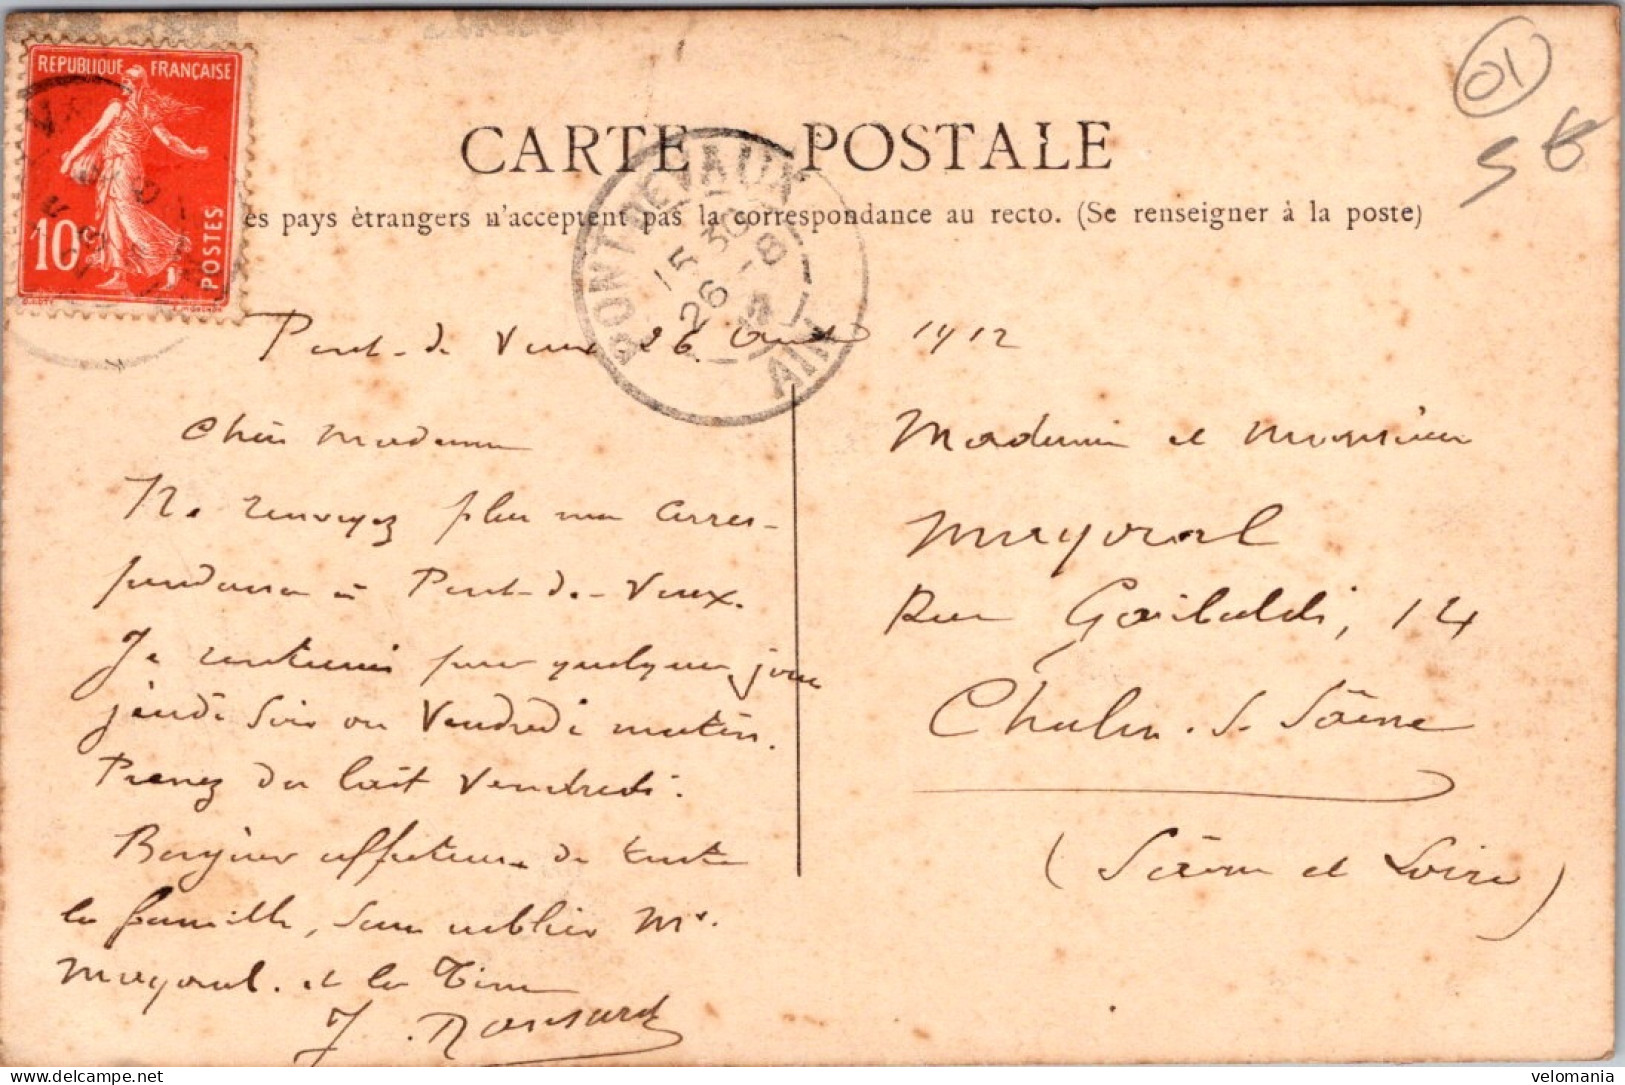 REPUBLIQUE FRANÇAISE
10c
POSTES
01
CARTE POSTALE
es pays ètrangers n'acceptent pas la correspondance au recto. (Se renseigner à la poste)
PONT DE VAUX
15 30
26 - 8
12
AIN
Pont-de Vaux 26 Août 1912
Chère Madame
Ne renvoyez plus ma corres-
pondance à Pont-de-Vaux.
Je pour quelques jours
jeudi soir ou Vendredi matin.
Prenez du lait Vendredi.
Bonjour affectueux de toute
la famille, sans oublier Mr.
Mayoral. et la
J. Ronsard
Madame et Monsieur
Mayoral
Rue Garibaldi, 14
Chalon. s. Saône
(Saône et Loire)
velomania | Delcampe.net